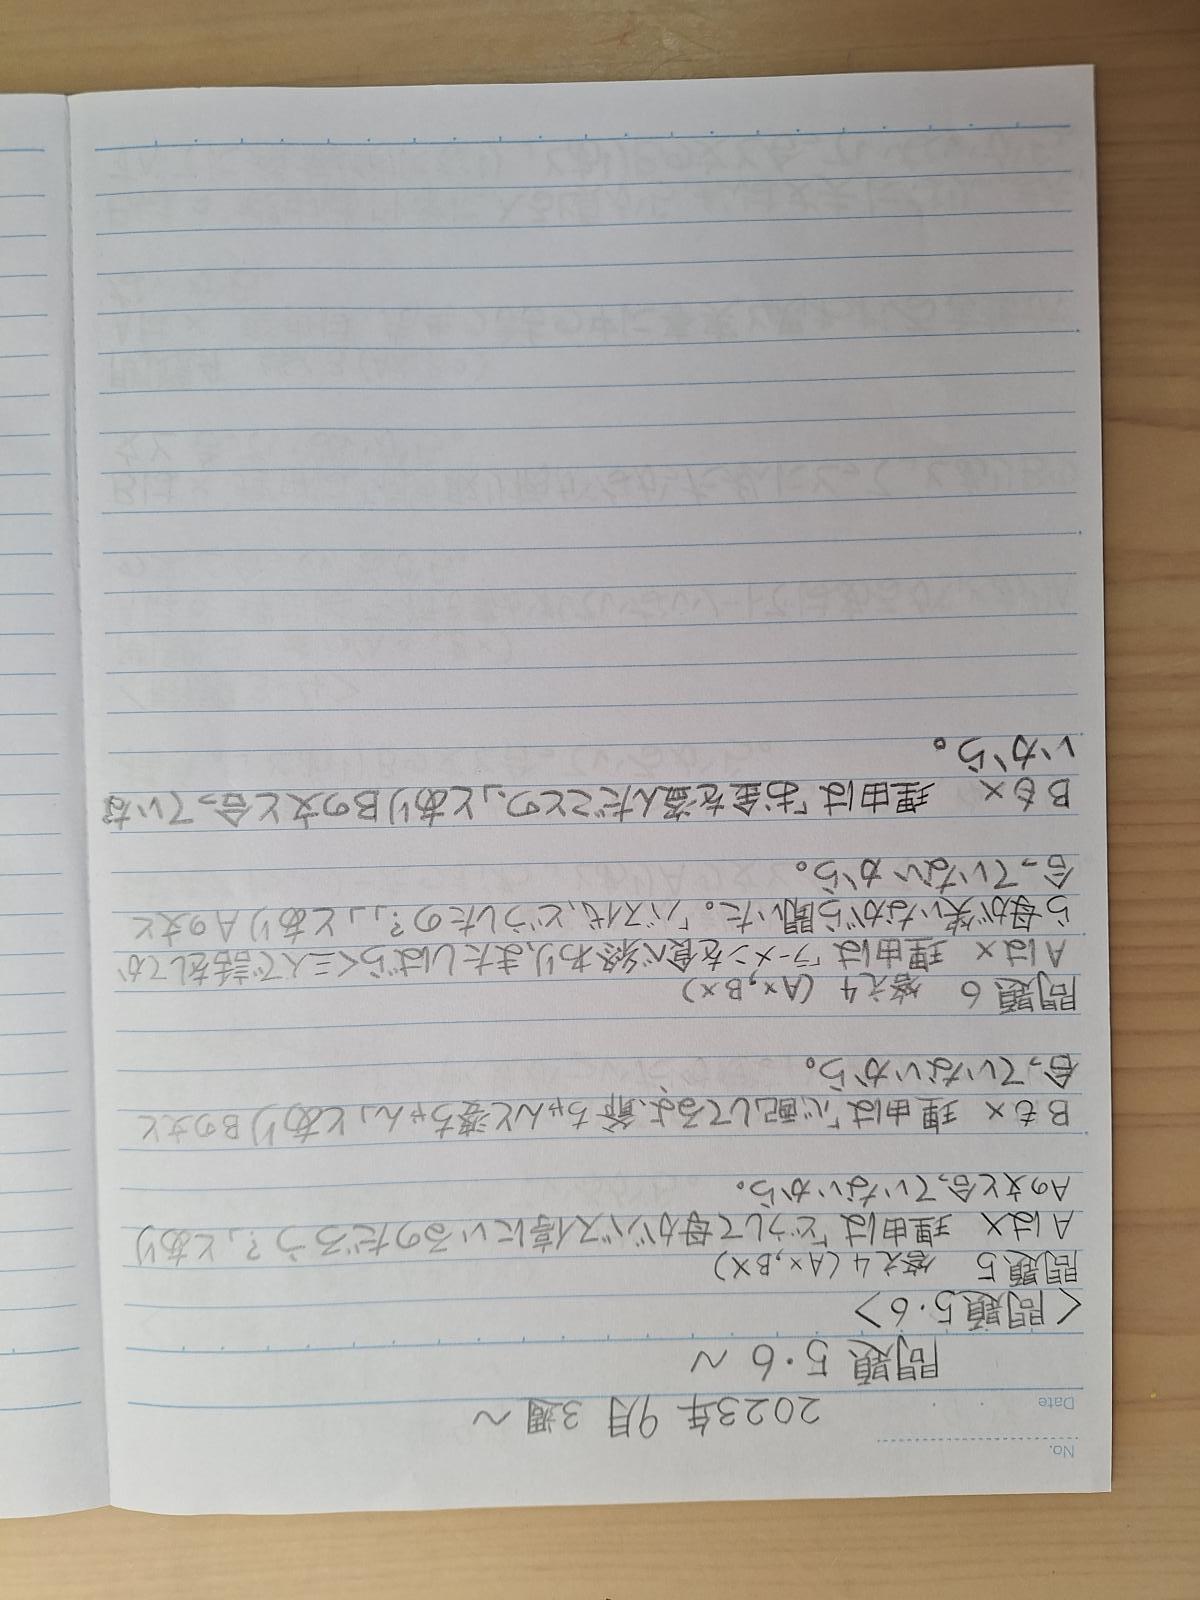 No.
Date
2023年 9月 3週 ~
問題 5・6 ~
<問題 5・6>
問題 5 答え 4 (A×,B×)
Aは× 理由は「どうして母がバス停にいるのだろう?」とあり
Aの文と合っていないから。
Bも× 理由は「心配してるよ、爺ちゃんと婆ちゃん」とありBの文と
合っていないから。
問題 6 答え 4 (A×,B×)
Aは× 理由は「ラーメンを食べ終わり、またしばらく三人で話をしてか
ら母が笑いながら聞いた。「バス代、どうしたの?」」とありAの文と
合っていないから。
Bも× 理由は「お金を盗んだことの」とありBの文と合っていな
いから。